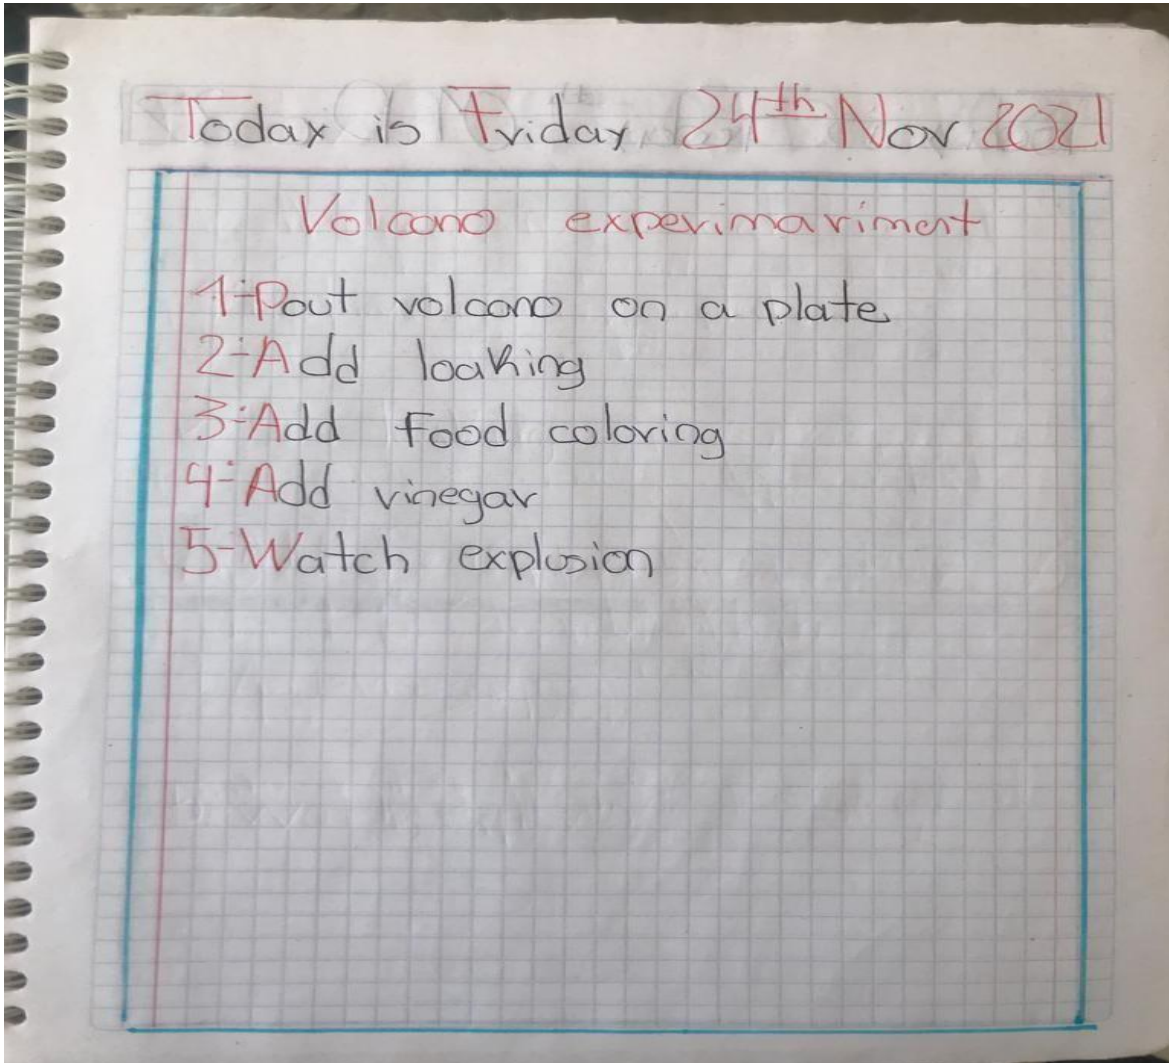 Today is Friday 24th Nov 2021
Volcano experimariment
1-Pout volcano on a plate
2-Add loaking
3-Add Food coloring
4-Add vinegar
5-Watch explosion